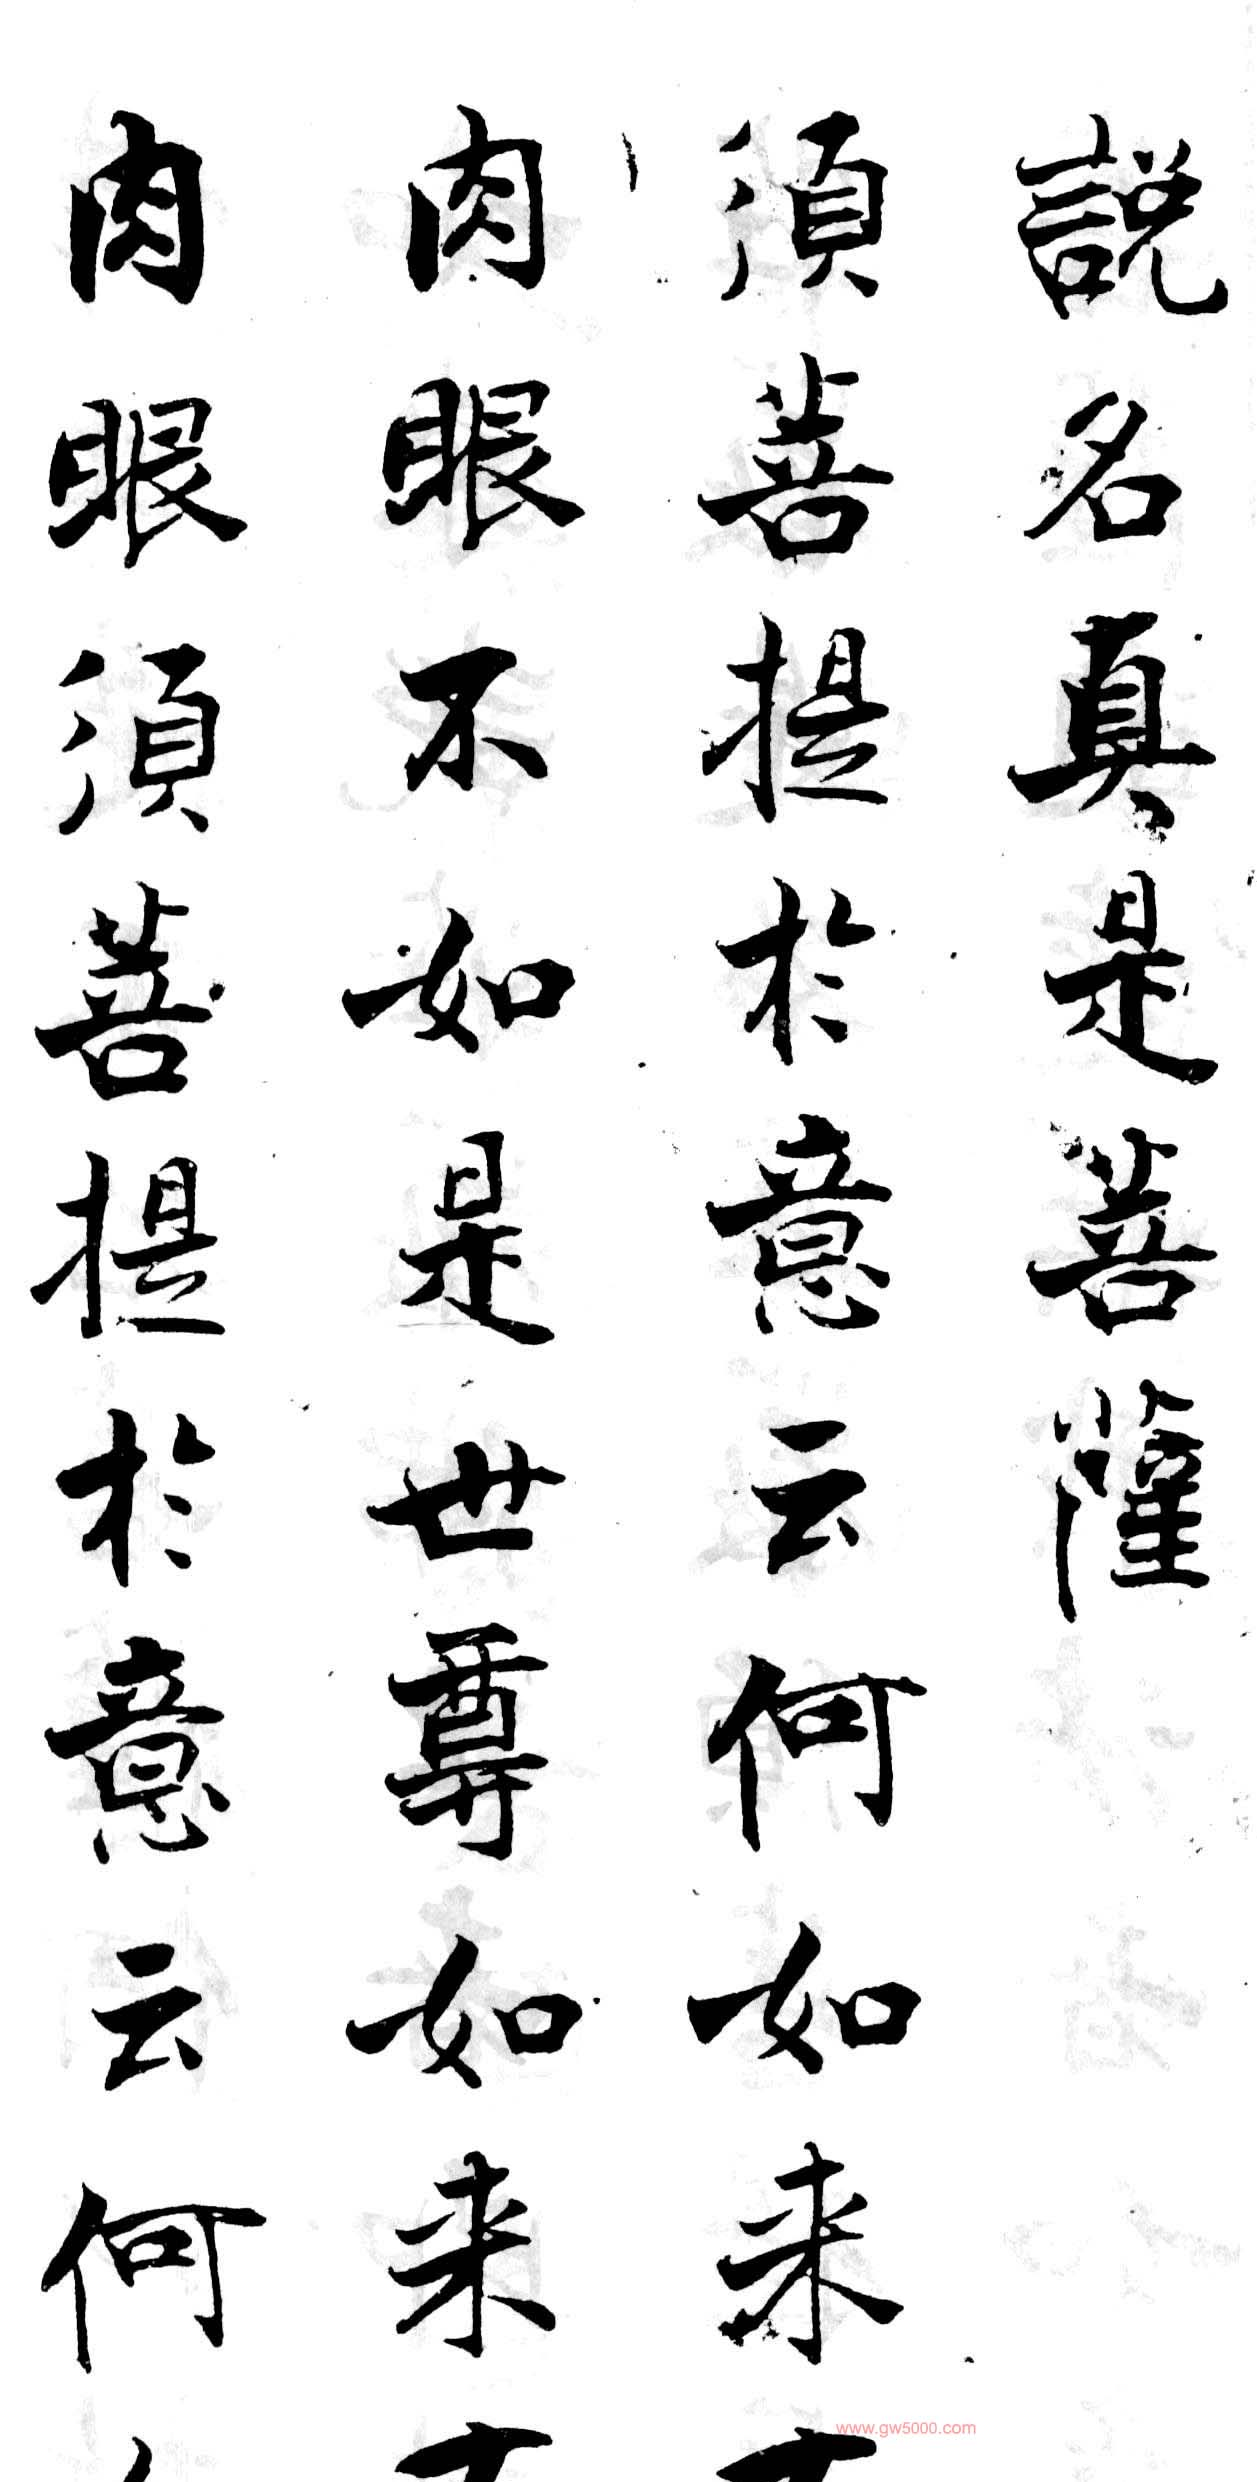 説名真是菩薩
須菩提於意云何如来
肉眼不如是世尊如来
肉眼須菩提於意云何
www.gw5000.com